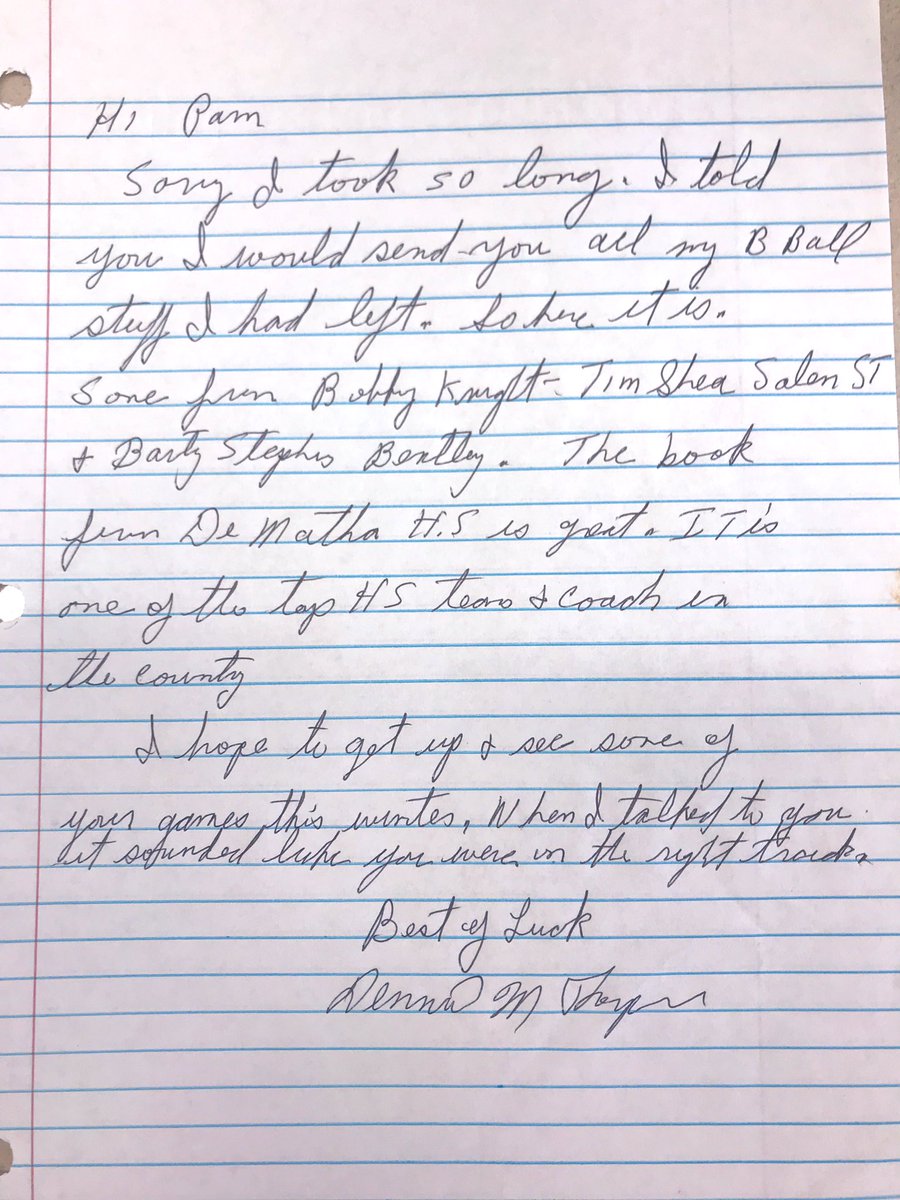 Hi Pam
Sorry I took so long. I told
you I would send you all my B Ball
stuff I had left. So here it is.
Some from Bobby Knight - Tim Shea Salem ST
& Barty Stephes Bentley. The book
from De Matha H.S is great. IT is
one of the top HS team & coach in
the county
I hope to get up & see some of
your games this winter. When I talked to you
it sounded like you were on the right track.
Best of Luck
M